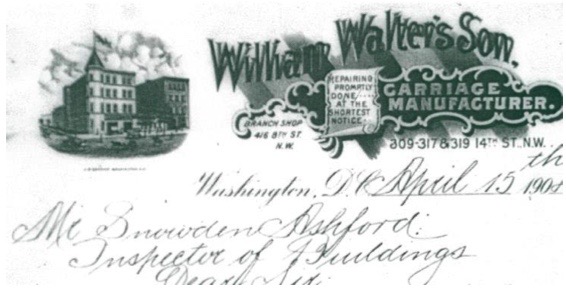 William Walter's Son.
REPAIRING
PROMPTLY
DONE
AT THE
SHORTEST
NOTICE.
CARRIAGE
MANUFACTURER.
BRANCH SHOP
416 8TH ST.
N.W.
309-317 & 319 14TH ST. N.W.
Washington, D.C. April 15th 1904
Mr Snowden Ashford:
Inspector of Buildings
Dear Sir: